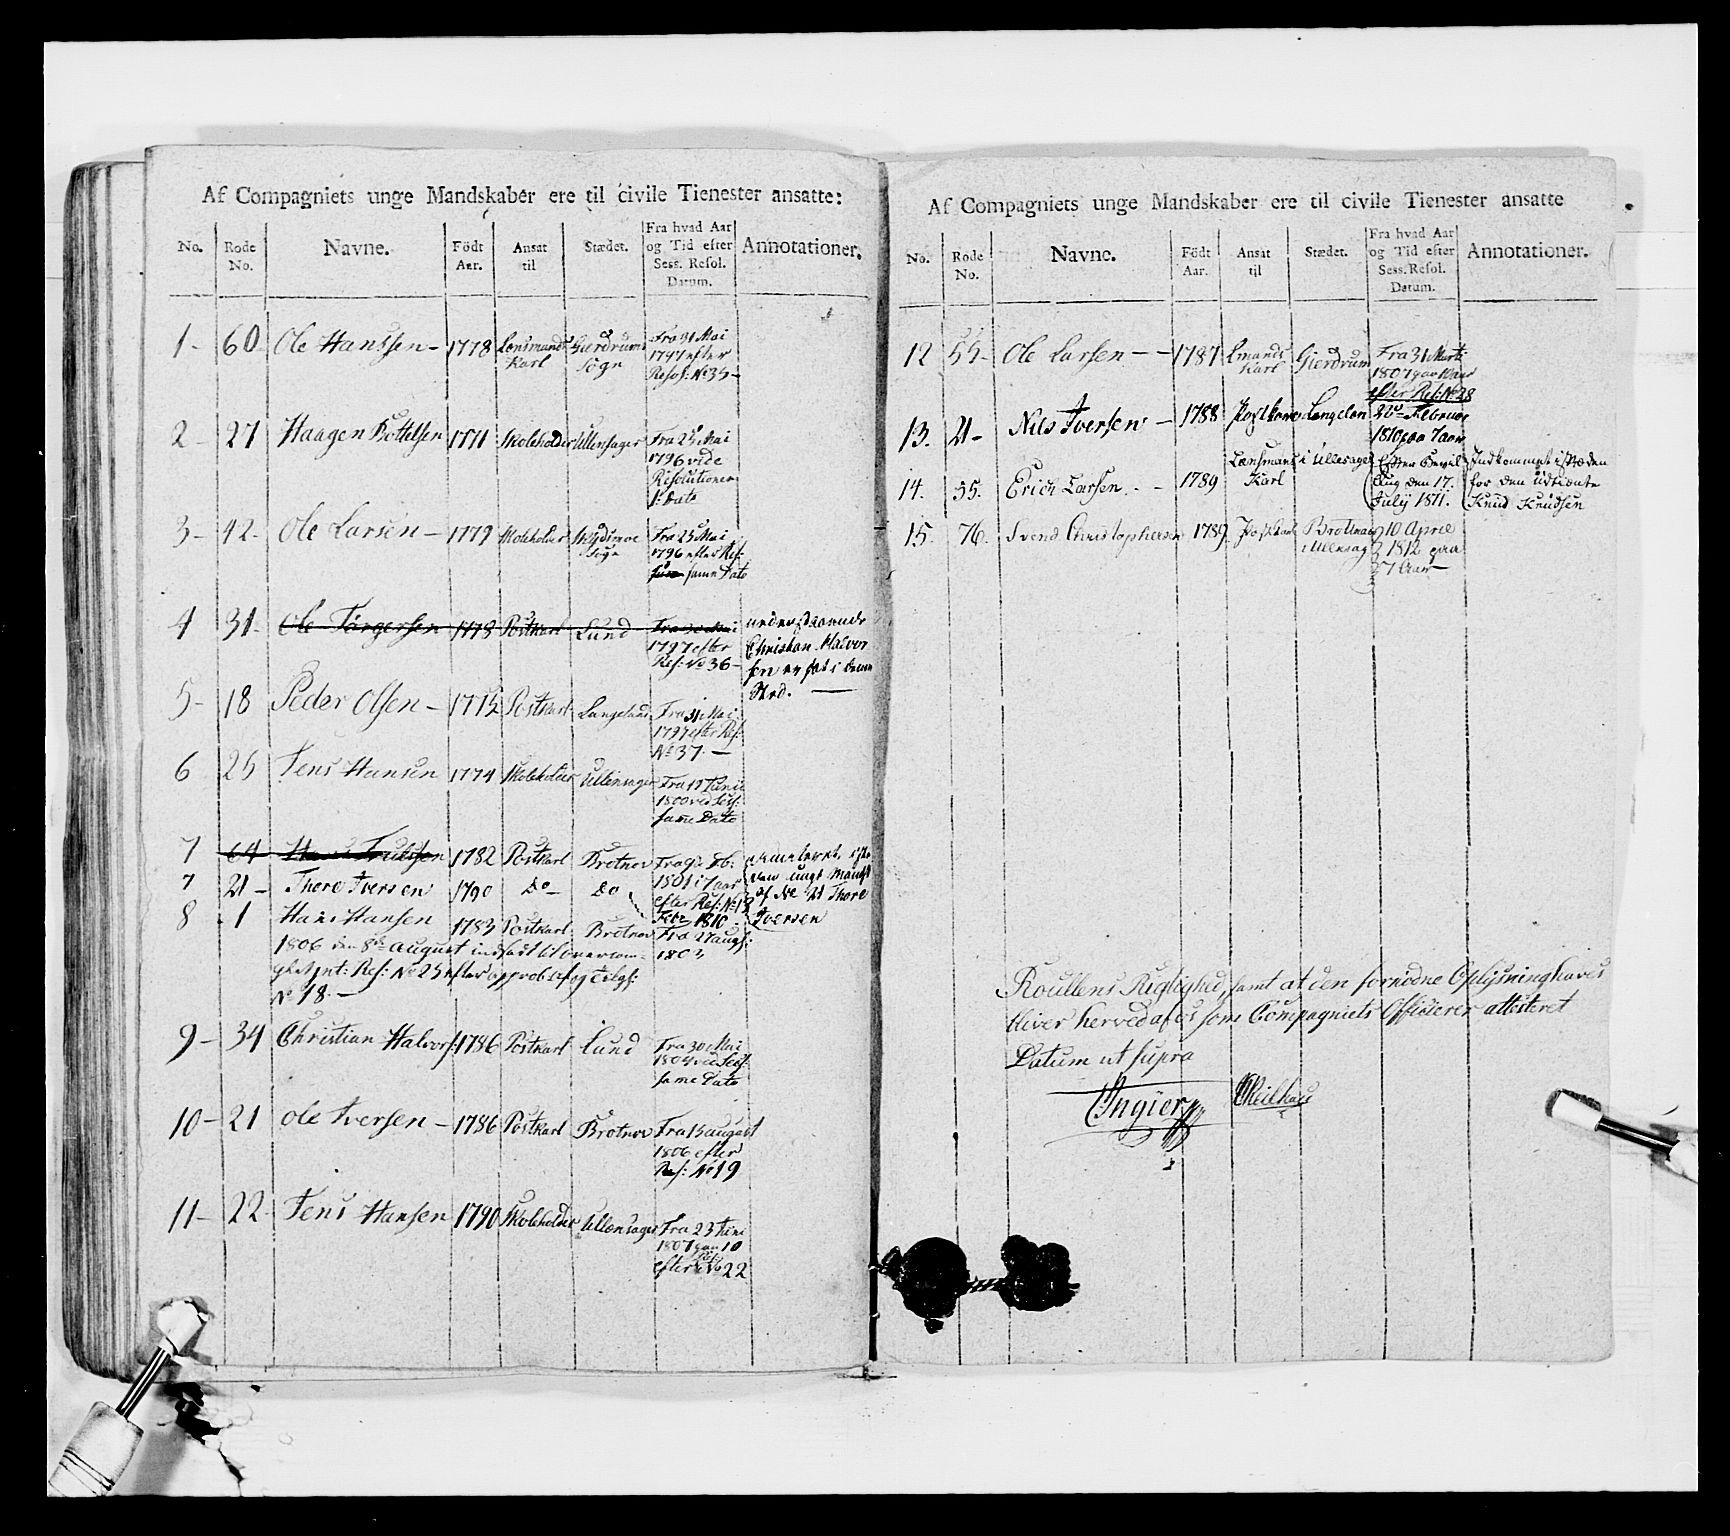 Af Compagniets unge Mandskaber ere til civile Tienester ansatte:
No. Rode No. Navne. Födt Aar. Ansat til Stædet. Fra hvad Aar og Tid efter Sess. Resol. Datum. Annotationer.
1- 60 Ole Hanssen - 1778 Lensmands Karl Gierdrums Sogn Fra 31 Mai 1797 efter Resol: No 35-
2- 27 Haagen Bottelsen 1771 Skoleholder Ullensager Fra 25 Mai 1796 vide Resolutionen s: Dato
3- 42- Ole Larsen - 1779 Skoleholder Sogn Fra 25 Mai 1796 efter Res: same Dato
4 31- Ole Torgersen 1778 Postkarl Lund Fra 30 Mai 1797 efter Res: No 36- Christian Halvorsen er sat i denne Sted. -
5- 18 Peder Olsen - 1775 Postkarl Langeland Fra 31 Mai 1797 efter Res: No 37. -
6 25 Jens Hansen 1774 Skoleholder Ullensager Fra 17 Junii 1800 ved Sess: same Dato
7 64 Trulssen 1782 Postkarl Brotnov 1801 i 7 aar efter Res: No 13
7 21- Thore Iversen 1790 Do- Do Febr 1810 unge Mandsk af No 21 Thore Iversen
8 1 Hans Hansen 1783 Postkarl Brotnov Fra 27 augs: 1803
1806 den 8de August indsadt til
Res: No 25 efter approb: af
No 18. -
9- 34 Christian Halvors: 1786 Postkarl Lund Fra 30 Mai 1804 ved Sess: same Dato
10- 21 Ole Iversen - 1786 Postkarl Brotnov Fra 15 august 1806 efter Res: No 19
11- 22 Jens Hansen 1790 Skoleholder Ullensager Fra 23 Juni 1807 paa 10 efter Res: No 22
Af Compagniets unge Mandskaber ere til civile Tienester ansatte
No. Rode No. Navne. Födt Aar. Ansat til Stædet. Fra hvad Aar og Tid efter Sess. Resol. Datum. Annotationer.
12 55- Ole Larsen - - 1787 Lmands Karl Gierdrum Fra 31 Marts 1807 efter Res: No 28
13. 21- Nils Iversen - 1788 Postkarl Langelan Februar 1810 paa 7 aar
14. 55. Erich Larsen. - - 1789 Lænsmans Karl i Ullesager Efter Bevilling den 17. July 1811. Indkommet i Stæden for den udtiente Knud Knudsen
15. 76. Svend Christophersen 1789 Postkarl i Ullensag 10 April 1812 paa 7 Aar -
Roullens Rigtighed, samt at den fornödne Oplysning haves
bliver herved af os som Compagniets Officierer attesteret
Datum ut supra
Ingier